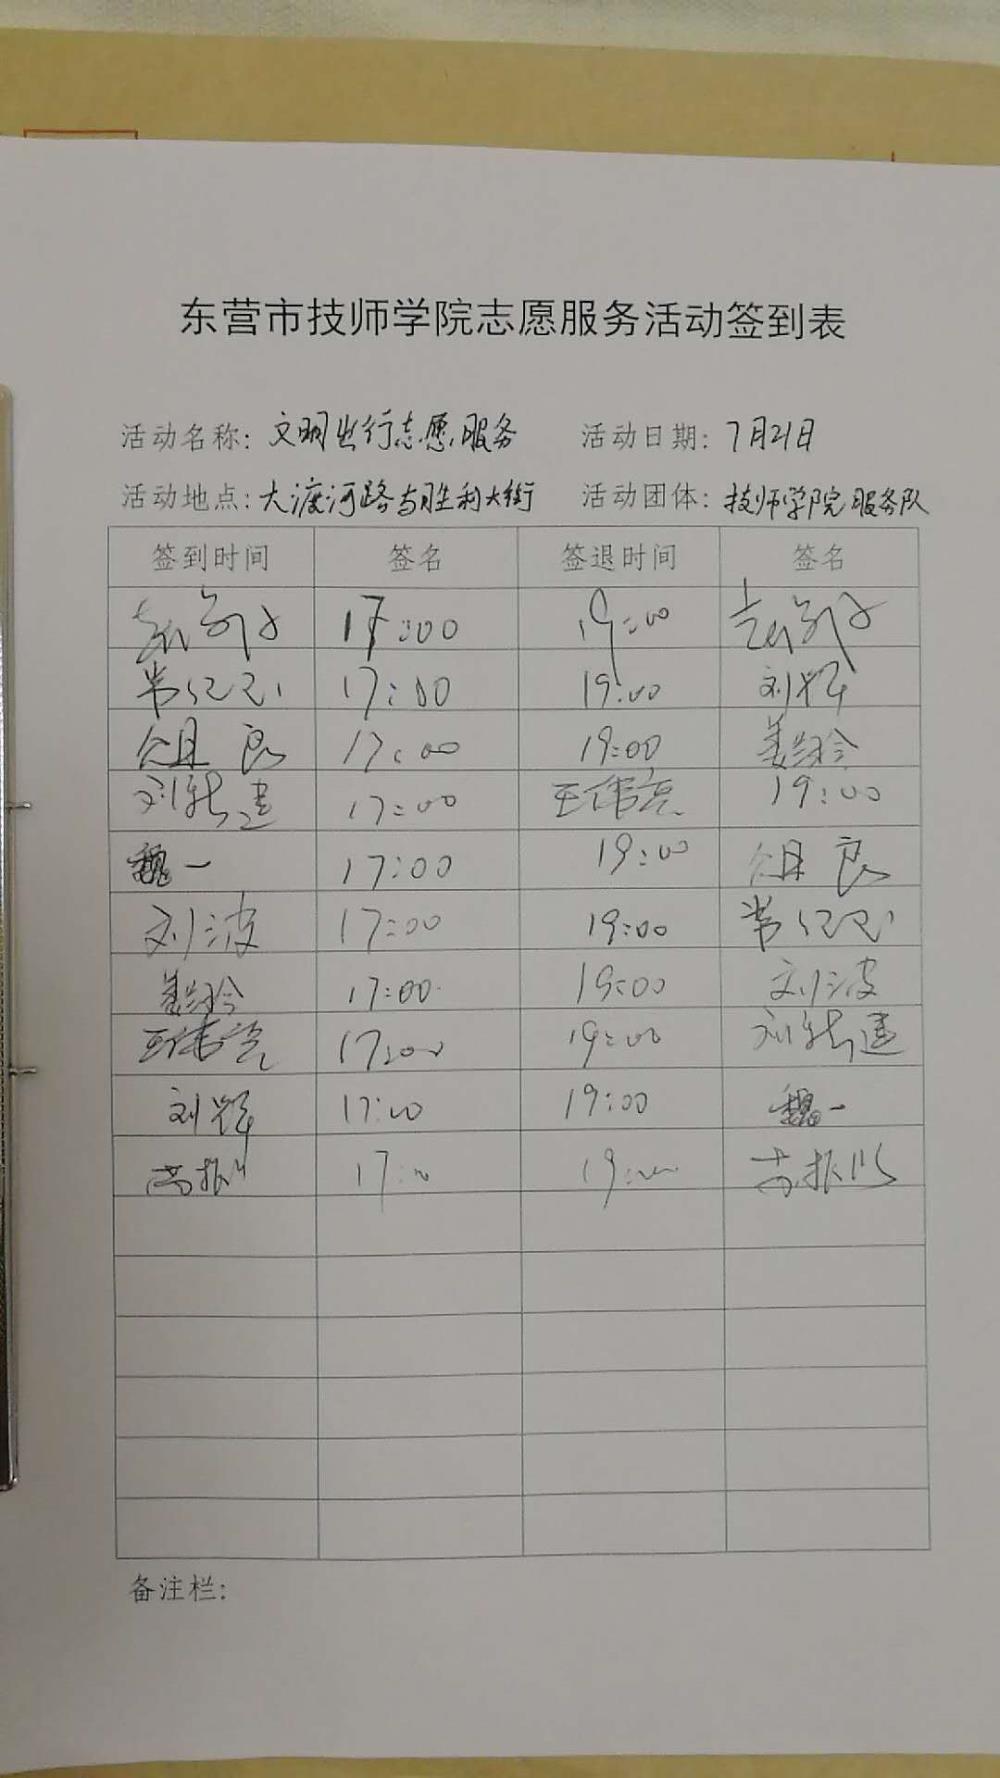 东营市技师学院志愿服务活动签到表
活动名称: 文明出行志愿服务 活动日期: 7月21日
活动地点: 大渡河路与胜利大街 活动团体: 技师学院服务队
签到时间 签名 签退时间 签名
17:00 19:00
17:00 19:00 刘
17:00 19:00 姜
刘 17:00 王伟亮 19:00
魏一 17:00 19:00
刘波 17:00 19:00
姜 17:00 19:00 刘波
王伟亮 17:00 19:00 刘
刘 17:00 19:00 魏一
17:00 19:00 苏振
备注栏: